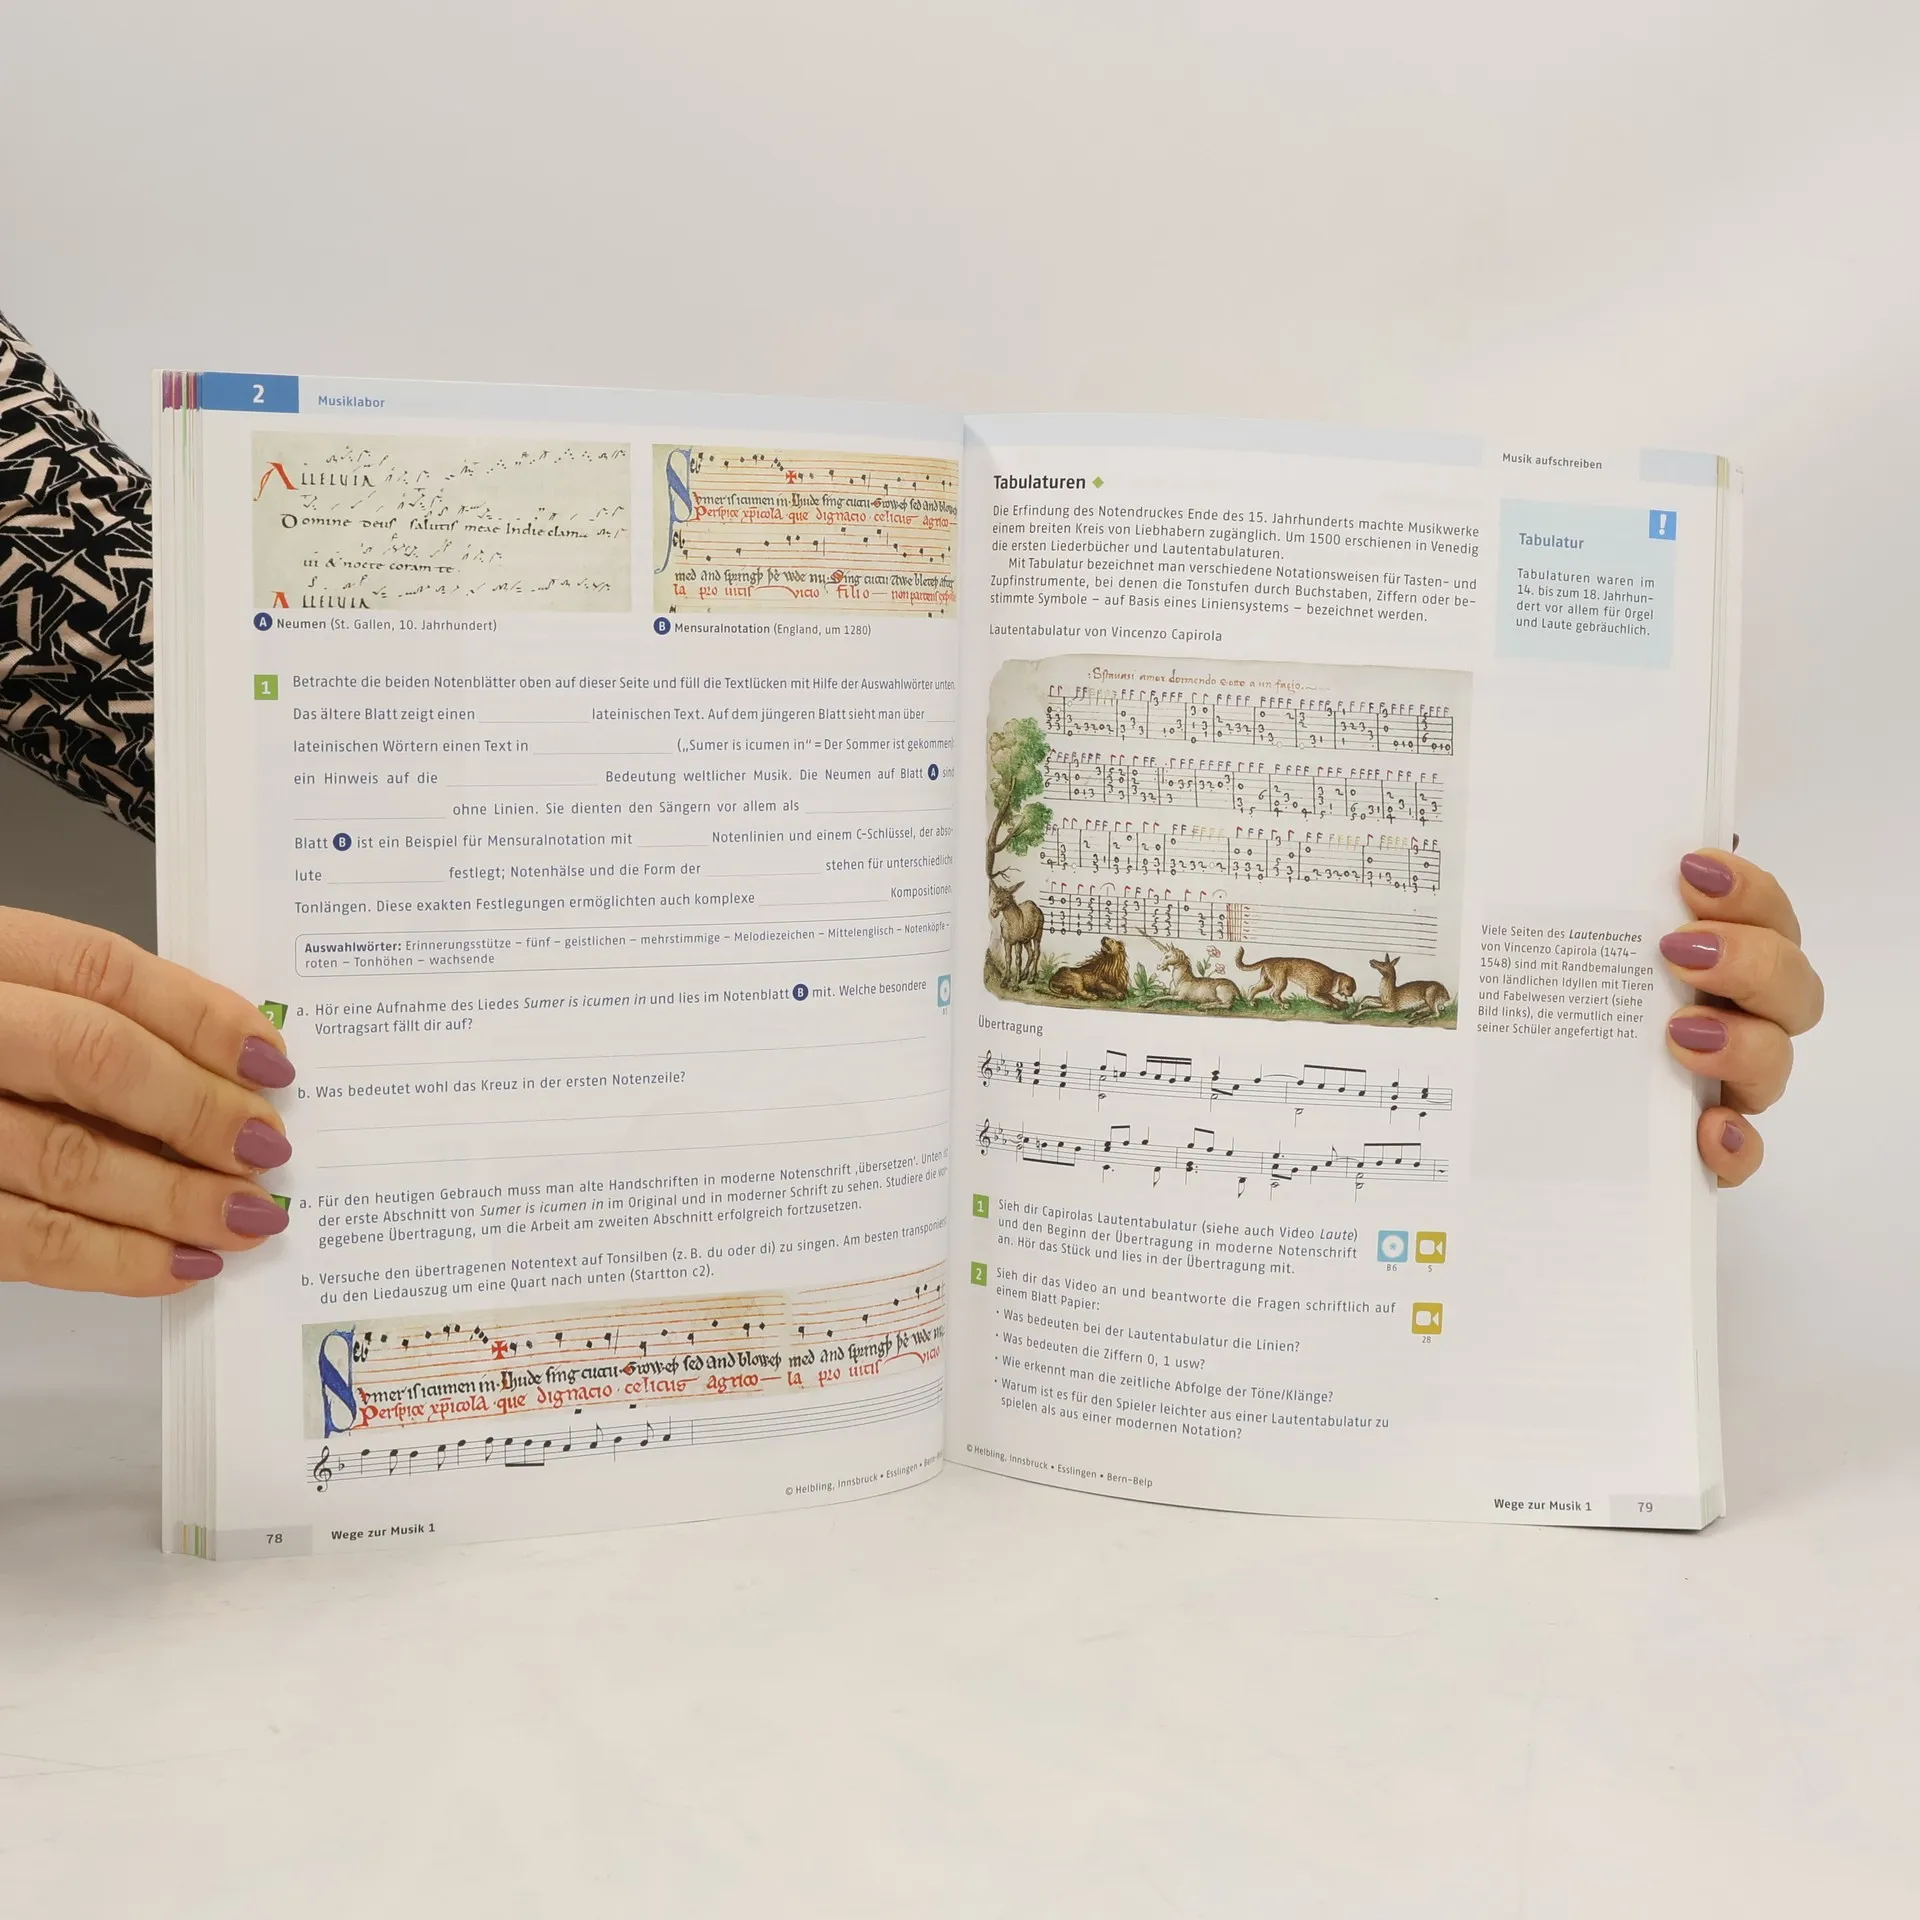 2
Musiklabor
ALLELUIA
Domine deus salutis meae In die clama
A LLELUIA
A Neumen (St. Gallen, 10. Jahrhundert)
B Mensuralnotation (England, um 1280)
1 Betrachte die beiden Notenblätter oben auf dieser Seite und füll die Textlücken mit Hilfe der Auswahlwörter unten.
Das ältere Blatt zeigt einen lateinischen Text. Auf dem jüngeren Blatt sieht man über
lateinischen Wörtern einen Text in („Sumer is icumen in“ = Der Sommer ist gekommen)
ein Hinweis auf die Bedeutung weltlicher Musik. Die Neumen auf Blatt A sind
ohne Linien. Sie dienten den Sängern vor allem als
Blatt B ist ein Beispiel für Mensuralnotation mit Notenlinien und einem C-Schlüssel, der abso-
lute festlegt; Notenhälse und die Form der stehen für unterschiedliche
Tonlängen. Diese exakten Festlegungen ermöglichten auch komplexe Kompositionen.
Auswahlwörter: Erinnerungsstütze – fünf – geistlichen – mehrstimmige – Melodiezeichen – Mittelenglisch – Notenköpfe –
roten – Tonhöhen – wachsende
2 a. Hör eine Aufnahme des Liedes Sumer is icumen in und lies im Notenblatt B mit. Welche besondere
Vortragsart fällt dir auf?
b. Was bedeutet wohl das Kreuz in der ersten Notenzeile?
a. Für den heutigen Gebrauch muss man alte Handschriften in moderne Notenschrift ‚übersetzen‘. Unten ist
der erste Abschnitt von Sumer is icumen in im Original und in moderner Schrift zu sehen. Studiere die vor-
gegebene Übertragung, um die Arbeit am zweiten Abschnitt erfolgreich fortzusetzen.
b. Versuche den übertragenen Notentext auf Tonsilben (z. B. du oder di) zu singen. Am besten transponierst
du den Liedauszug um eine Quart nach unten (Startton c2).
© Helbling, Innsbruck • Esslingen • Bern-Belp
78
Wege zur Musik 1
Musik aufschreiben
Tabulaturen
Die Erfindung des Notendruckes Ende des 15. Jahrhunderts machte Musikwerke
einem breiten Kreis von Liebhabern zugänglich. Um 1500 erschienen in Venedig
die ersten Liederbücher und Lautentabulaturen.
Mit Tabulatur bezeichnet man verschiedene Notationsweisen für Tasten- und
Zupfinstrumente, bei denen die Tonstufen durch Buchstaben, Ziffern oder be-
stimmte Symbole – auf Basis eines Liniensystems – bezeichnet werden.
Lautentabulatur von Vincenzo Capirola
!
Tabulatur
Tabulaturen waren im
14. bis zum 18. Jahrhun-
dert vor allem für Orgel
und Laute gebräuchlich.
Viele Seiten des Lautenbuches
von Vincenzo Capirola (1474–
1548) sind mit Randbemalungen
von ländlichen Idyllen mit Tieren
und Fabelwesen verziert (siehe
Bild links), die vermutlich einer
seiner Schüler angefertigt hat.
Übertragung
1 Sieh dir Capirolas Lautentabulatur (siehe auch Video Laute)
und den Beginn der Übertragung in moderne Notenschrift
an. Hör das Stück und lies in der Übertragung mit.
B6 5
2 Sieh dir das Video an und beantworte die Fragen schriftlich auf
einem Blatt Papier:
28
• Was bedeuten bei der Lautentabulatur die Linien?
• Was bedeuten die Ziffern 0, 1 usw?
• Wie erkennt man die zeitliche Abfolge der Töne/Klänge?
• Warum ist es für den Spieler leichter aus einer Lautentabulatur zu
spielen als aus einer modernen Notation?
© Helbling, Innsbruck • Esslingen • Bern-Belp
Wege zur Musik 1
79